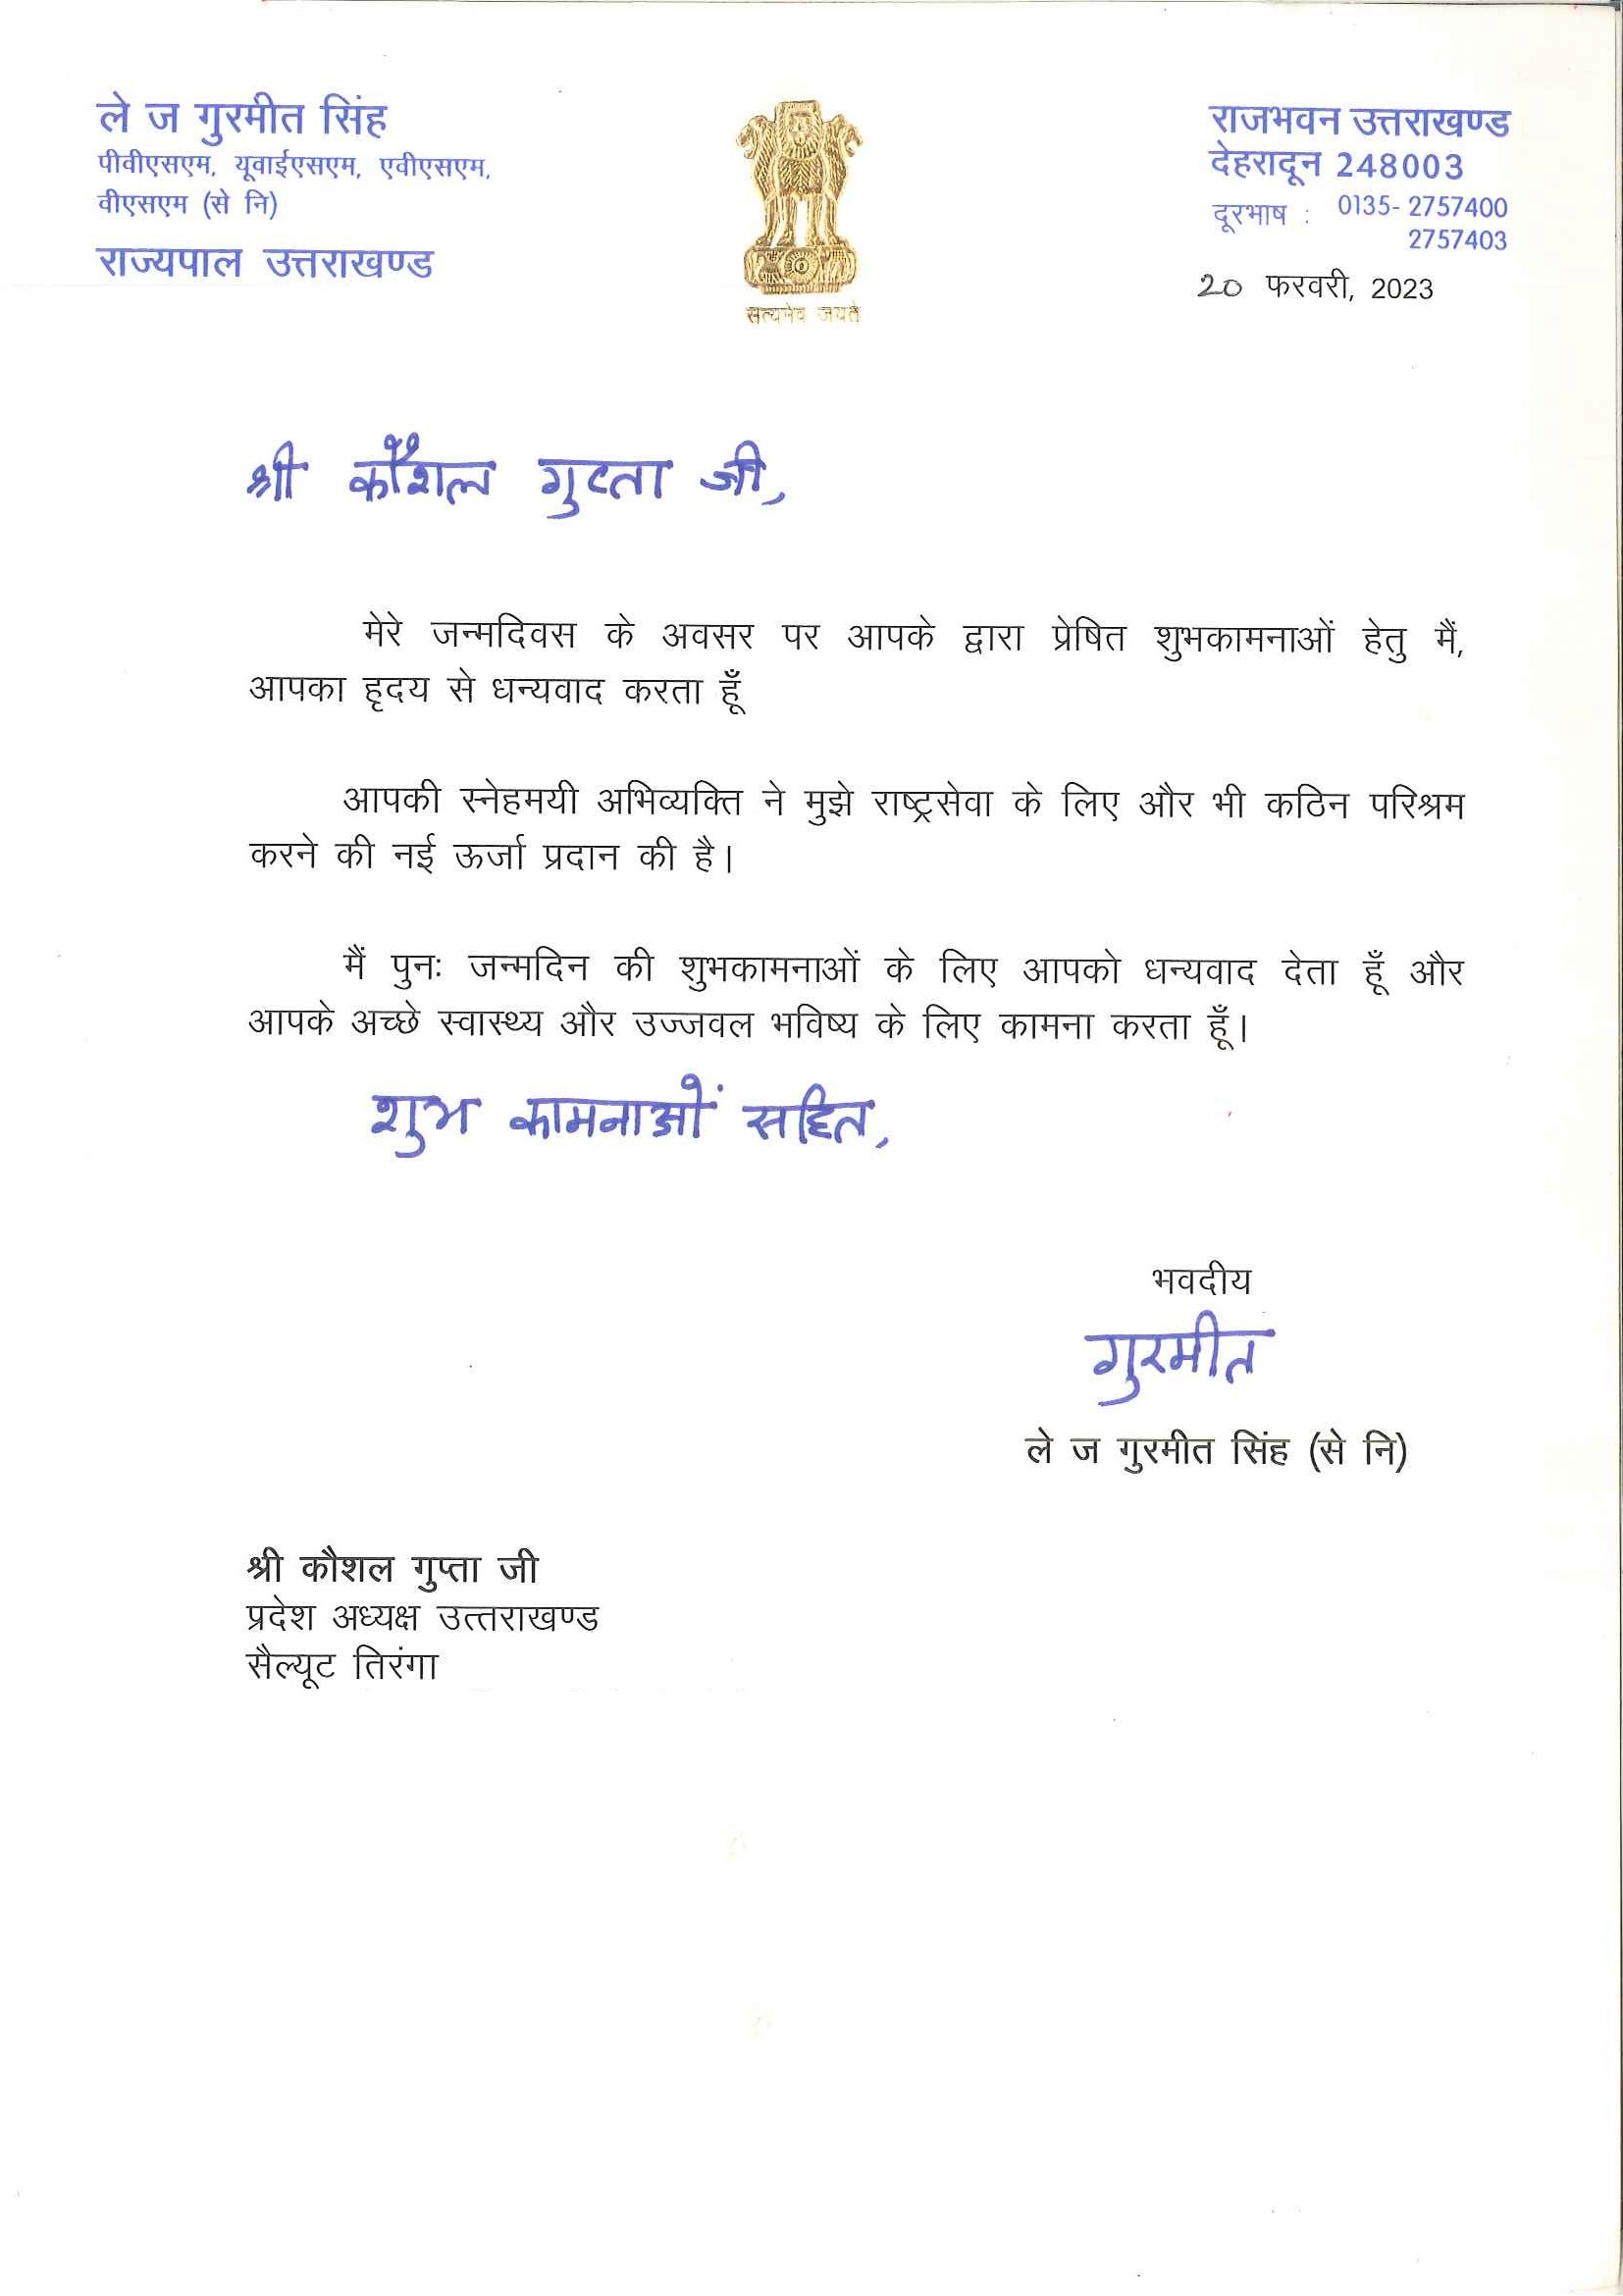 ले ज गुरमीत सिंह
पीवीएसएम, यूवाईएसएम, एवीएसएम,
वीएसएम (से नि)
राज्यपाल उत्तराखण्ड
सत्यमेव जयते
राजभवन उत्तराखण्ड
देहरादून 248003
दूरभाष : 0135- 2757400
2757403
20 फरवरी, 2023
श्री कौशल गुप्ता जी,
मेरे जन्मदिवस के अवसर पर आपके द्वारा प्रेषित शुभकामनाओं हेतु मैं,
आपका हृदय से धन्यवाद करता हूँ
आपकी स्नेहमयी अभिव्यक्ति ने मुझे राष्ट्रसेवा के लिए और भी कठिन परिश्रम
करने की नई ऊर्जा प्रदान की है।
मैं पुनः जन्मदिन की शुभकामनाओं के लिए आपको धन्यवाद देता हूँ और
आपके अच्छे स्वास्थ्य और उज्जवल भविष्य के लिए कामना करता हूँ।
शुभ कामनाओं सहित,
भवदीय
गुरमीत
ले ज गुरमीत सिंह (से नि)
श्री कौशल गुप्ता जी
प्रदेश अध्यक्ष उत्तराखण्ड
सैल्यूट तिरंगा